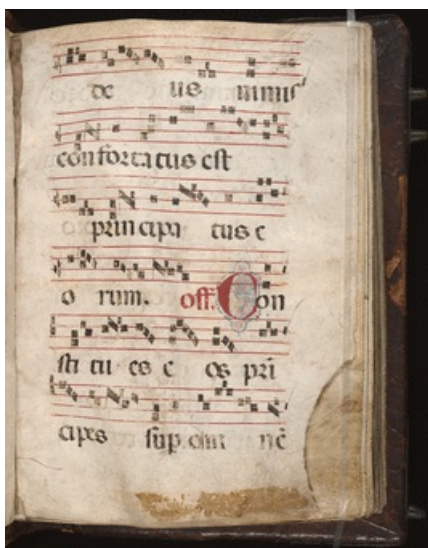 de us nimis
confortatus est
principa tus e
o rum. off. Con
sti tu es e os pri
cipes sup omn